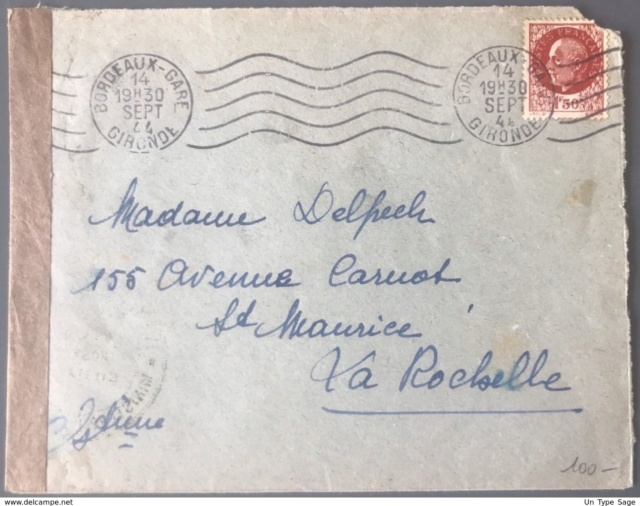 BORDEAUX-GARE
14
19H30
SEPT
44
GIRONDE
BORDEAUX-GA
14
19H30
SEPT
44
GIRONDE
1F50
Madame Delpech
155 Avenue Carnot
St Maurice
La Rochelle
100-
www.delcampe.net
Un Type Sage